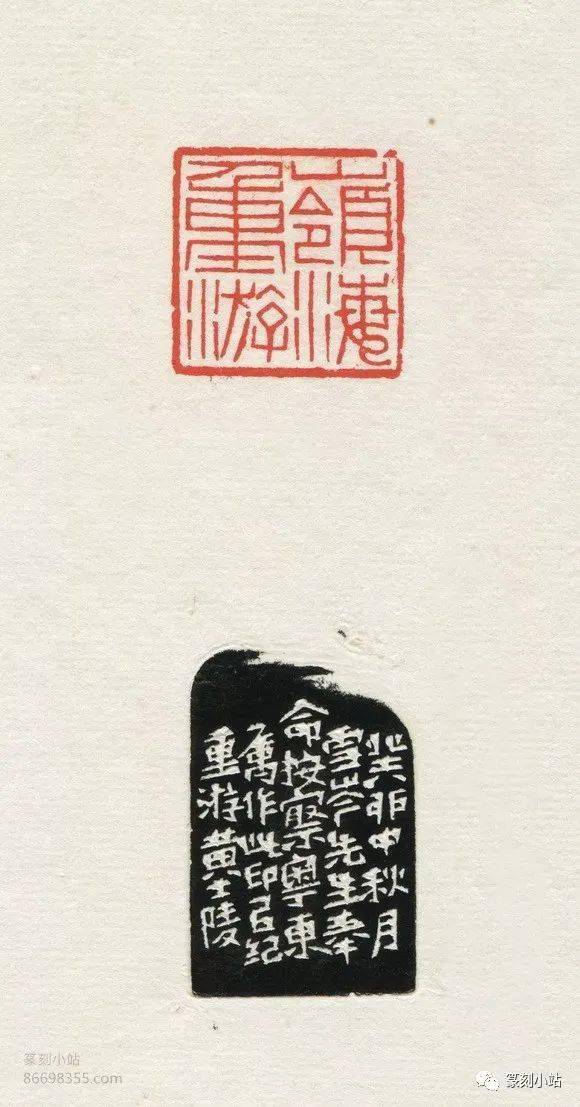 嶺海
重游
癸卯中秋月
雪岑先生奉
命按察粵東
作此印㠯紀
重游黃士陵
篆刻小站
86698355.com
篆刻小站